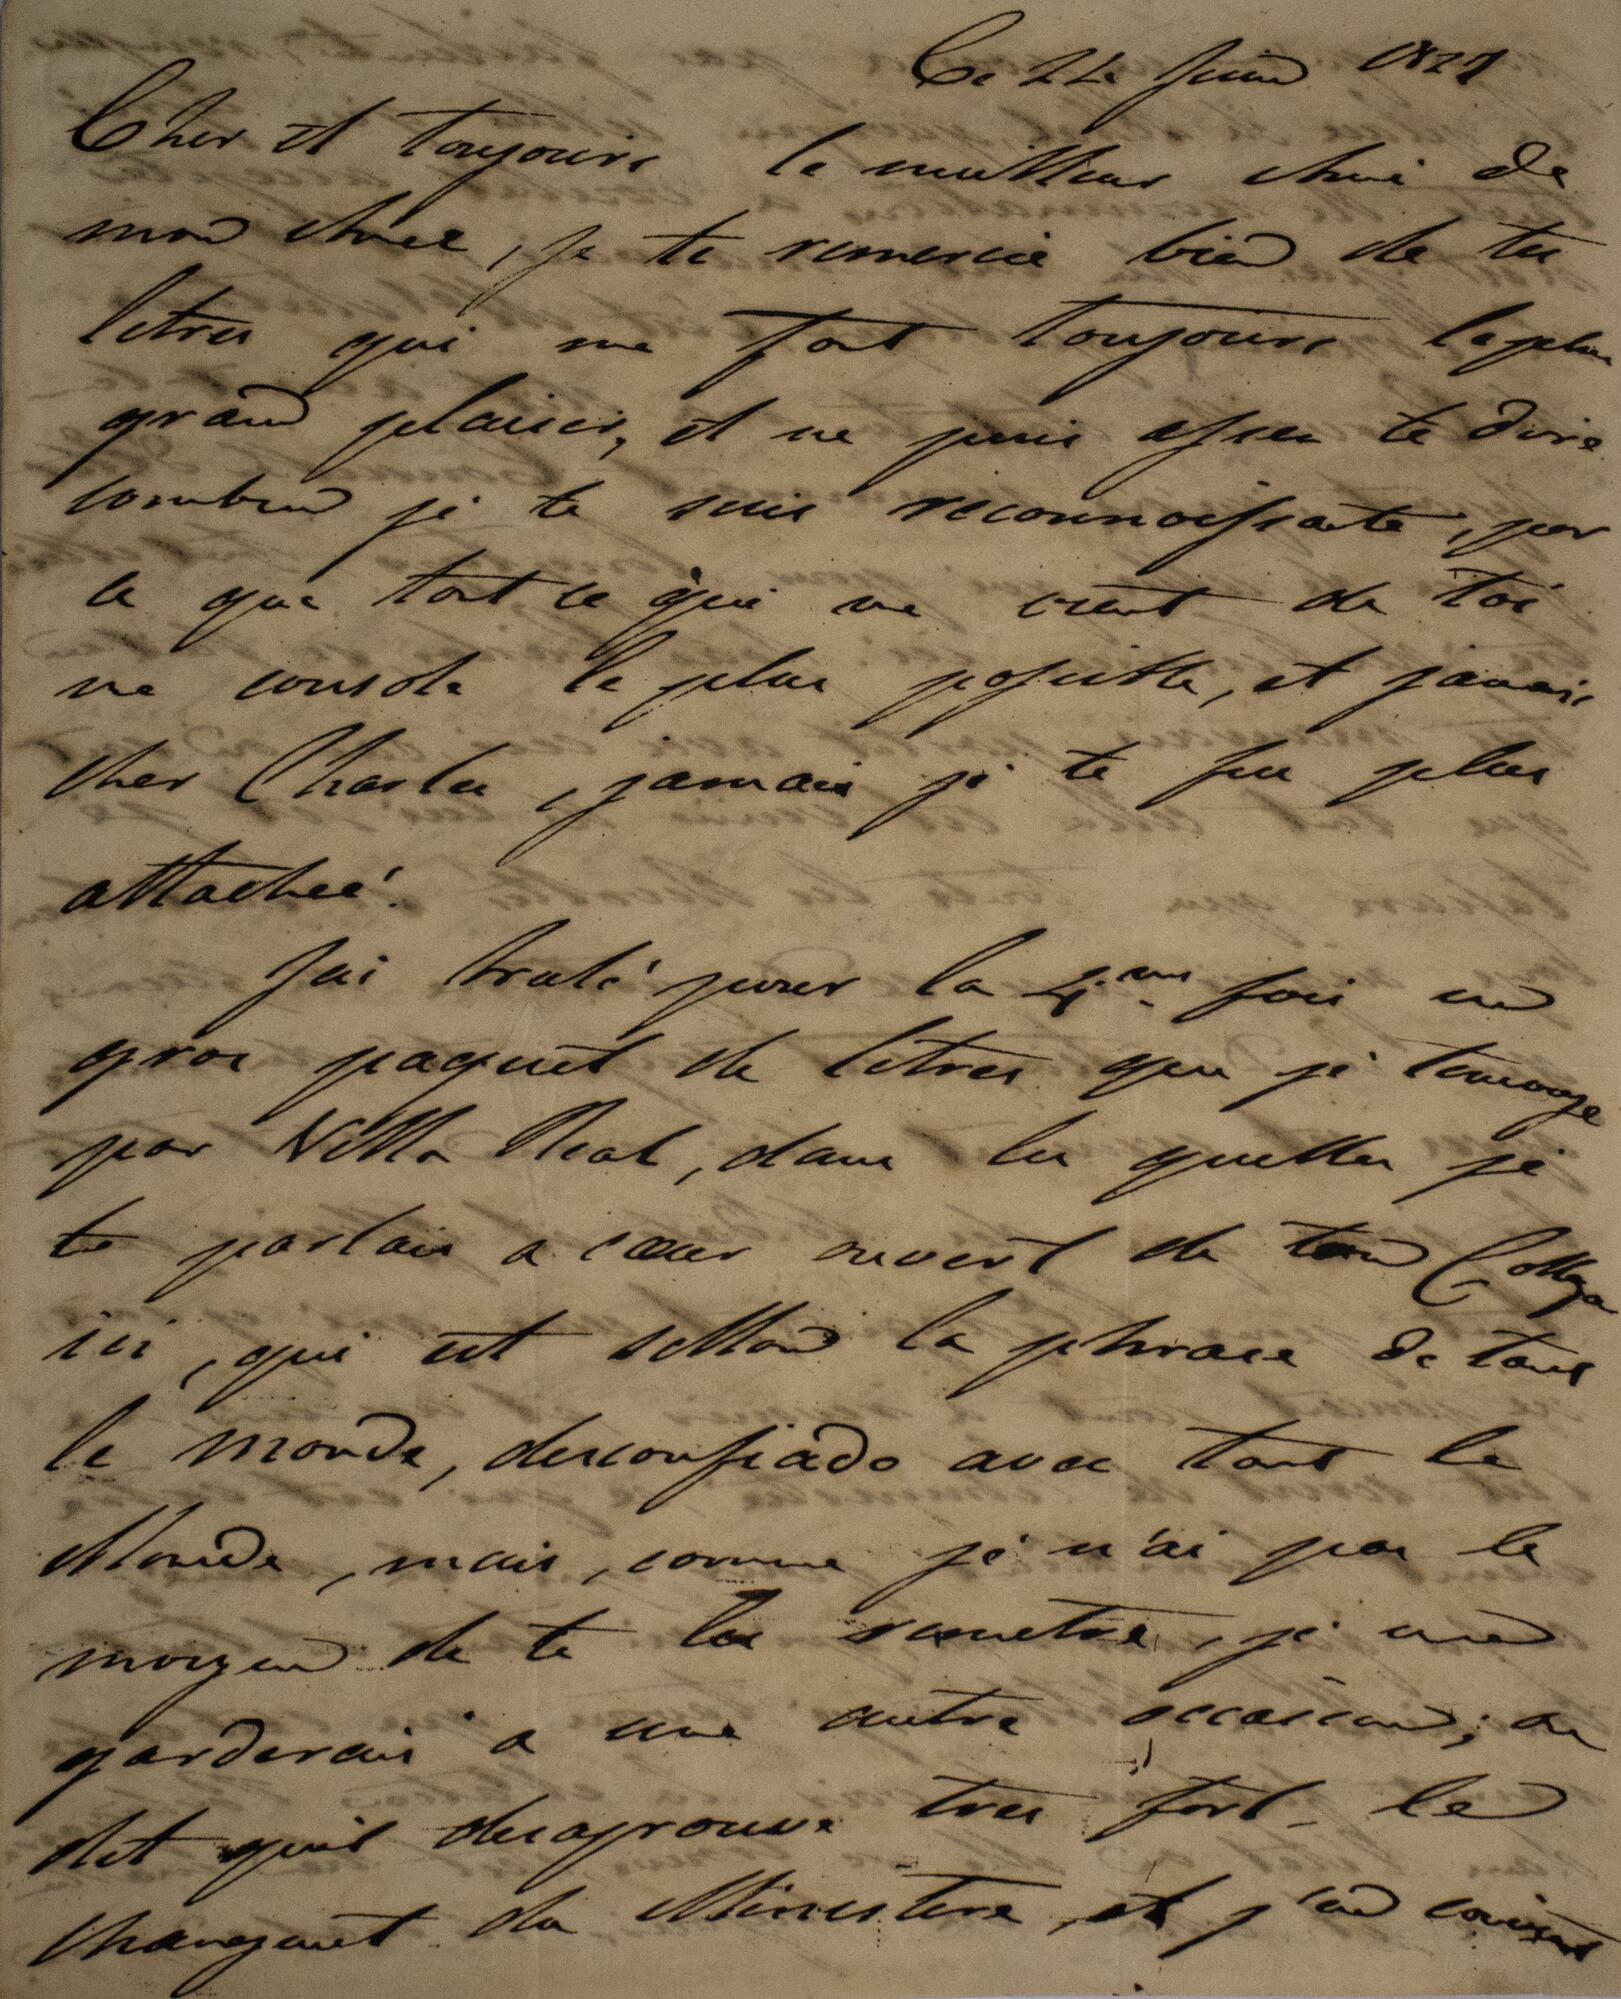 Ce 22 Juin 1827
Cher et toujours le meilleur Ami de
mon Amee, je te remercie bien de tes
letres qui me font toujours le plus
grand plaisir, et ne puis assez te dire
combien je te suis reconnoissante, par
ce que tout ce qui me vient de toi
me console le plus possible, et jamais
cher Charles, jamais je te fus plus
attacheé.
Jai brulé pour la 4.me fois un
gros paquet de letres que je t'envoye
par Villa Real, dans les quelles je
te parlais a cœur ouvert de ton Collega
ici, qui est sellon la phrase de tout
le monde, desconfiado avec tout le
Monde, mais, comme je n'ai pas le
moyen de te les remetre, je me
garderais a une autre occasion; on
dit quil desaprouve tres fort le
changement du Ministere, et j'en